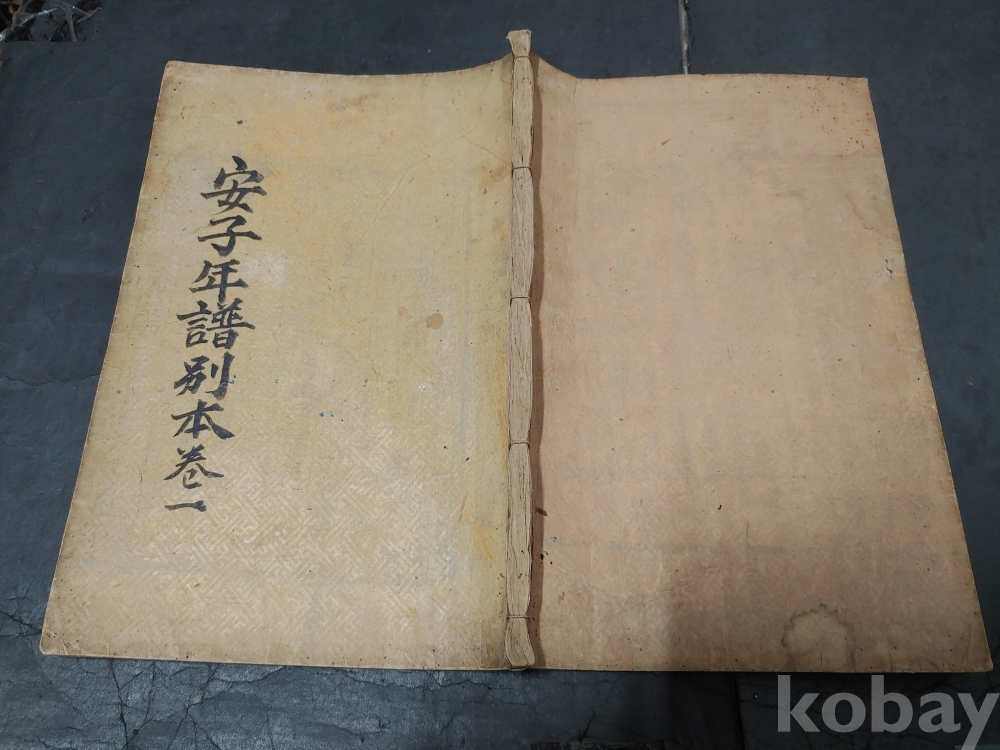 安子年譜別本卷一
kobay